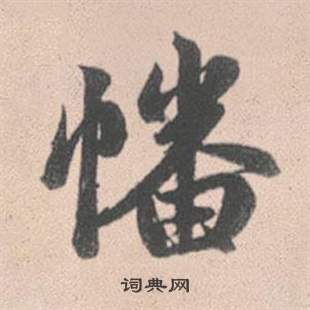 幡
词典网